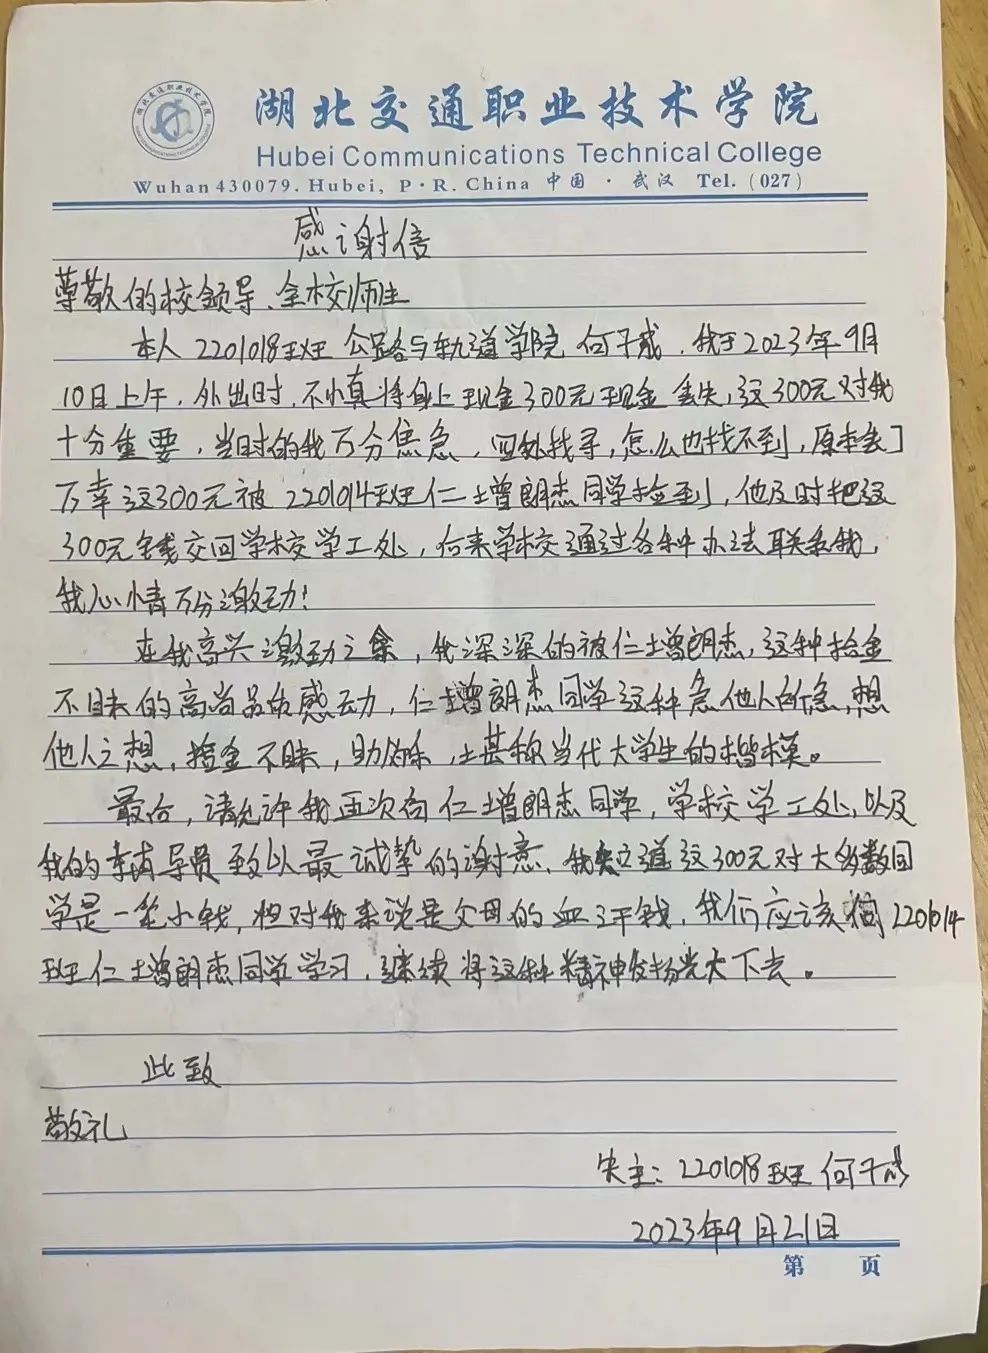 湖北交通职业技术学院
Hubei Communications Technical College
Wuhan 430079. Hubei, P·R. China 中国·武汉 Tel. (027)
感谢信
尊敬的校领导、全校师生
本人2201018班 公路与轨道学院 何子威，我于2023年9月
10日上午，外出时，不小真将身上现金300元现金丢失，这300元对我
十分重要，当时的我万分焦急，四处找寻，怎么也找不到，原本丢了
万幸这300元被2201014班仁增朗杰同学捡到，他及时把这
300元钱交回学校学工处，后来学校通过各种办法联系我，
我心情万分激动！
在我高兴激动之余，我深深的被仁增朗杰，这种拾金
不昧的高尚品质感动，仁增朗杰同学这种急他人所急，想
他人之想，拾金不昧，助人为乐，堪称当代大学生的楷模。
最后，请允许我再次向仁增朗杰同学，学校学工处，以及
我的辅导员致以最诚挚的谢意，我知道这300元对大多数同
学是一笔小钱，但对我来说是父母的血汗钱，我们应该向2201014
班仁增朗杰同学学习，继续将这种精神发扬光大下去。
此致
敬礼
失主：2201018班 何子威
2023年9月21日
第 页